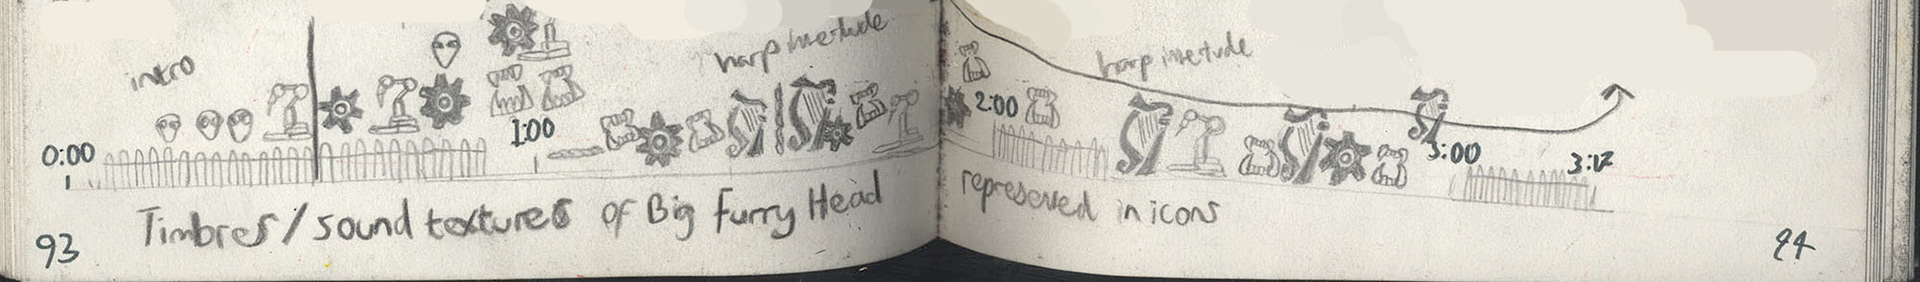 intro
harp inerlude
harp inerlude
0:00
1:00
2:00
3:00
3:12
Timbres/sound textures of Big Furry Head represened in icons
93
94